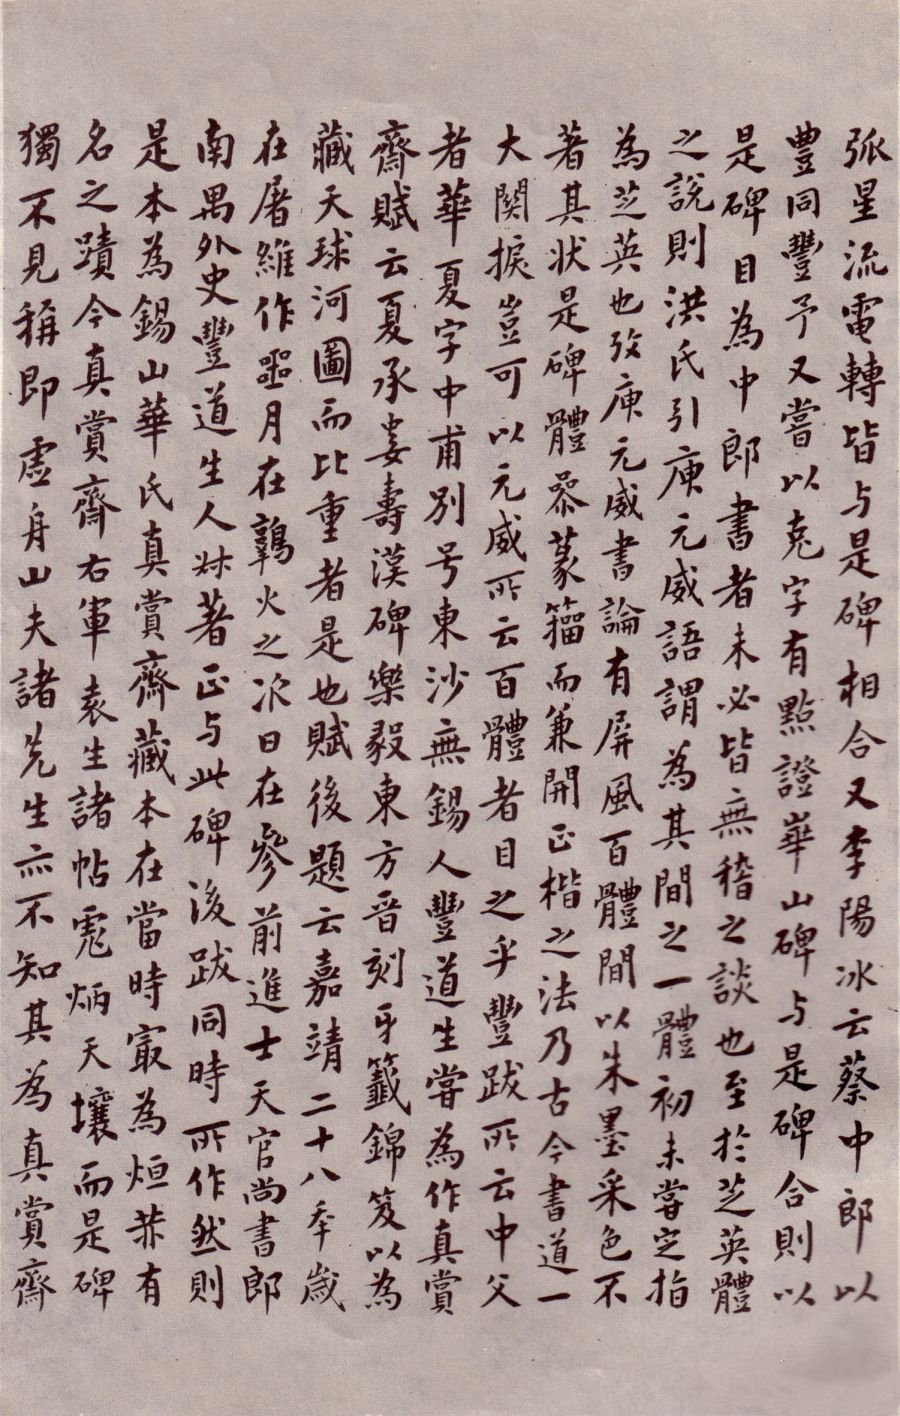 弧星流電轉皆与是碑相合又李陽冰云蔡中郎以
豊同豐予又嘗以兗字有點證崋山碑与是碑合則以
是碑目為中郎書者未必皆無稽之談也至於芝英體
之說則洪氏引庾元威語謂為其間之一體初未嘗定指
為芝英也攷庾元威書論有屏風百體間以朱墨采色不
著其状是碑體叅篆籀而兼開正楷之法乃古今書道一
大関捩豈可以元威所云百體者目之乎豐跋所云中父
者華夏字中甫別号東沙無錫人豐道生嘗為作真賞
齋賦云夏承婁壽漢碑樂毅東方晉刻牙籤錦笈以為
藏天球河圖而比重者是也賦後題云嘉靖二十八年歲
在屠維作噩月在鶉火之次日在參前進士天官尚書郎
南禺外史豐道生人尗著正与此碑後跋同時所作然則
是本為錫山華氏真賞齋藏本在當時㝡為烜赫有
名之蹟今真賞齋右軍袁生諸帖虎炳天壤而是碑
獨不見稱即虛舟山夫諸先生亦不知其為真賞齋